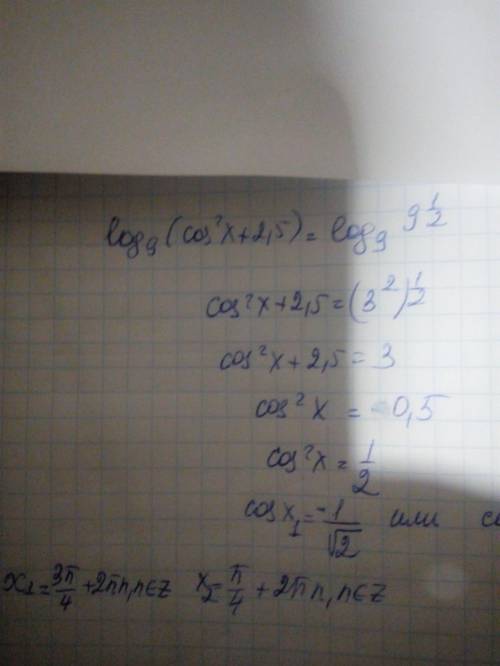 log₉(cos²x+2,5)=log₉ 9^(1/2)
cos²x+2,5=(3²)^(1/2)
cos²x+2,5=3
cos²x = 0,5
cos²x=1/2
cos x₁=-1/√2 или
x₁=3π/4+2πn,n∈z x₂ π/4+2πn,n∈z